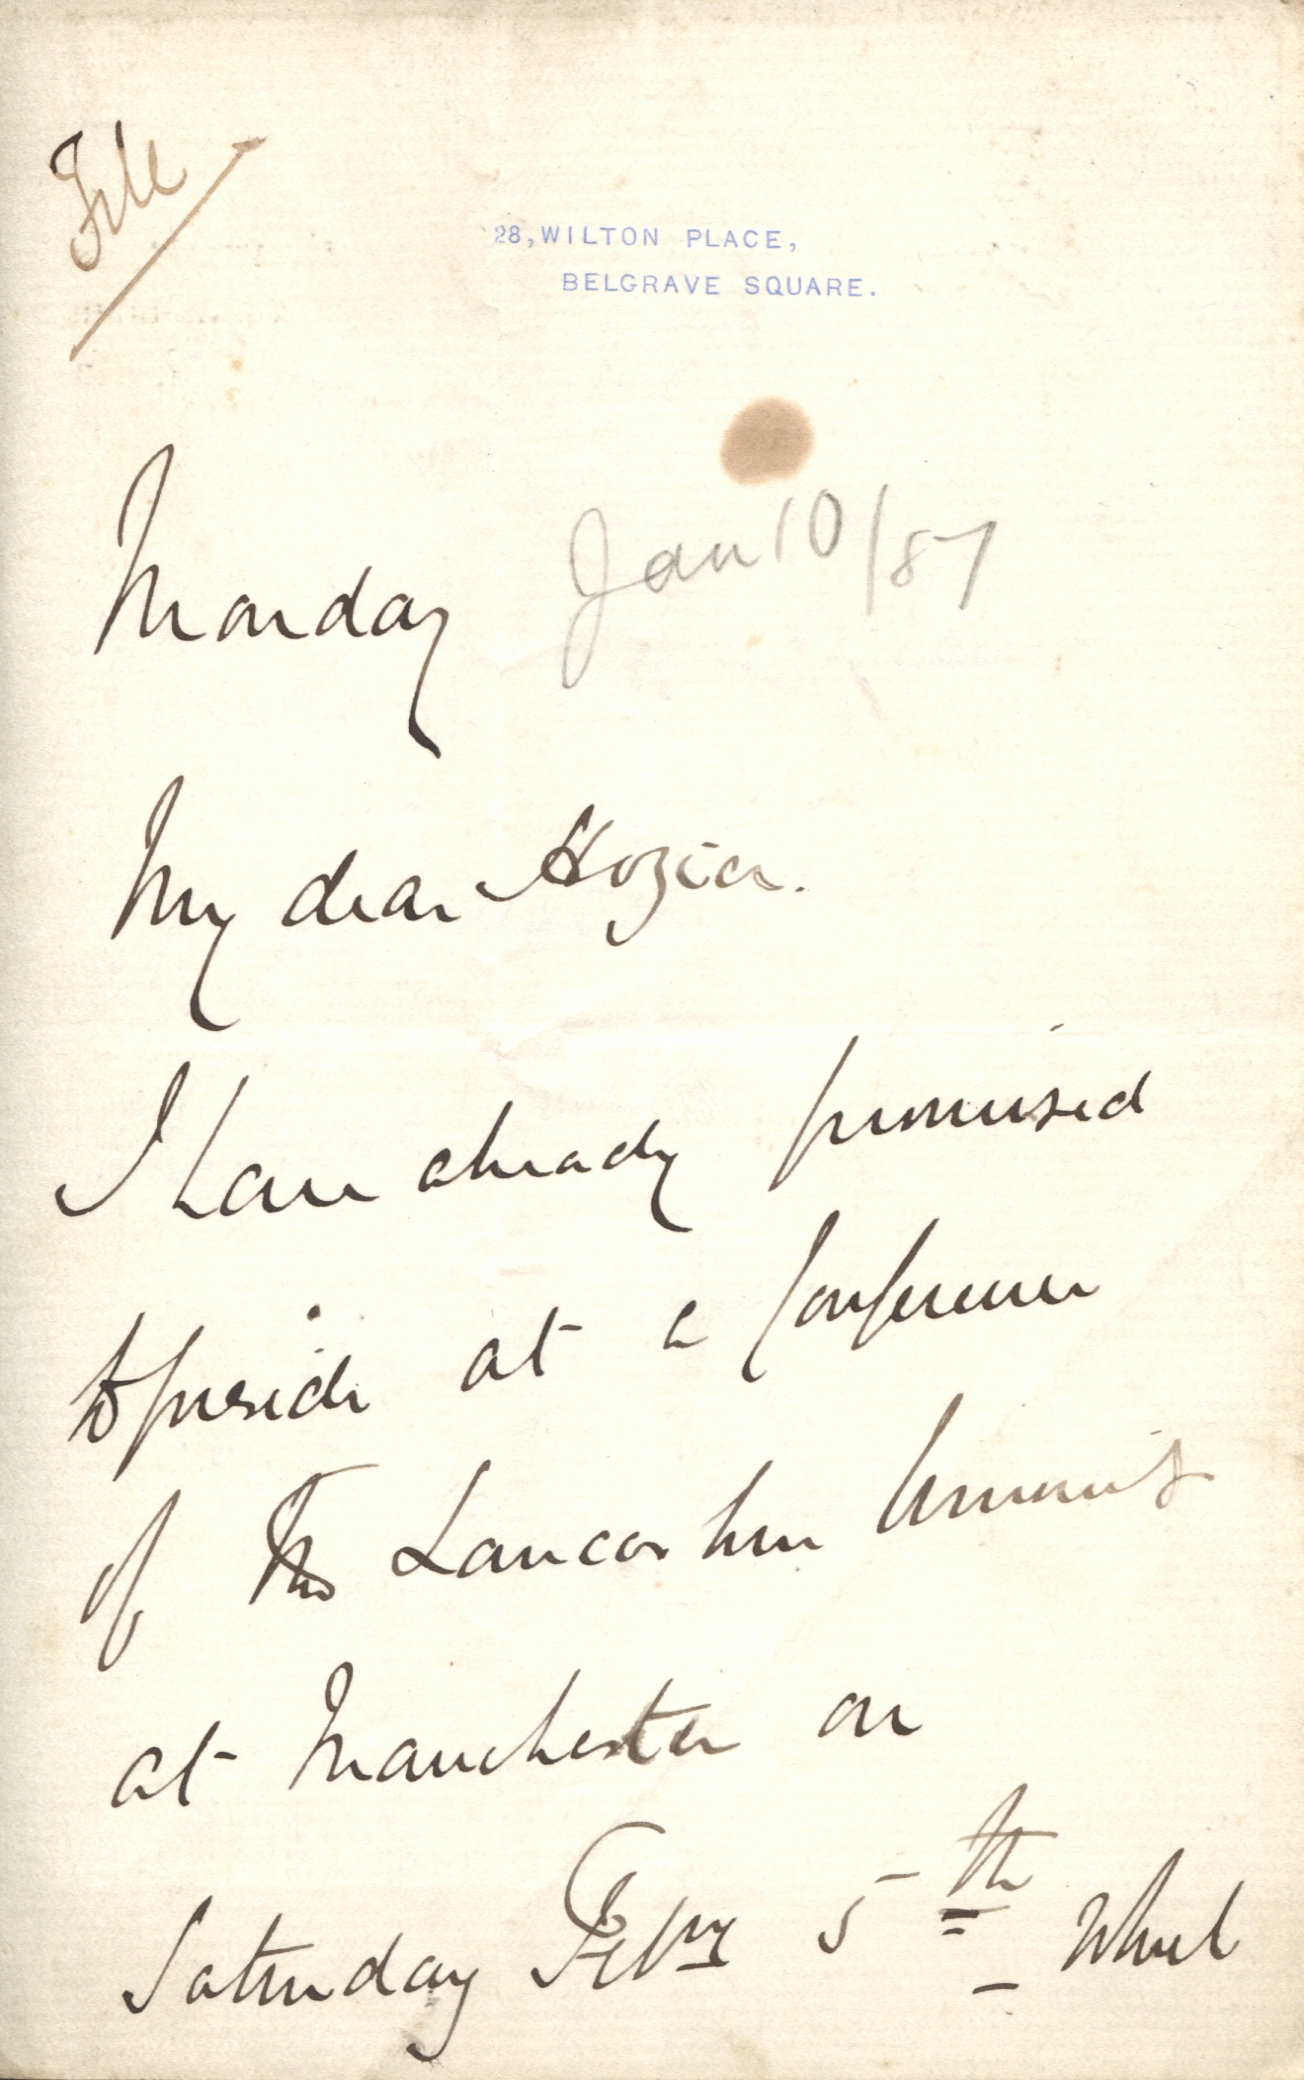 File
28, WILTON PLACE,
BELGRAVE SQUARE.
Monday Jan 10/87
My dear Hozier.
I have already promised
to preside at a Conference
of the Lancashire Unionists
at Manchester on
Saturday Feby 5th which